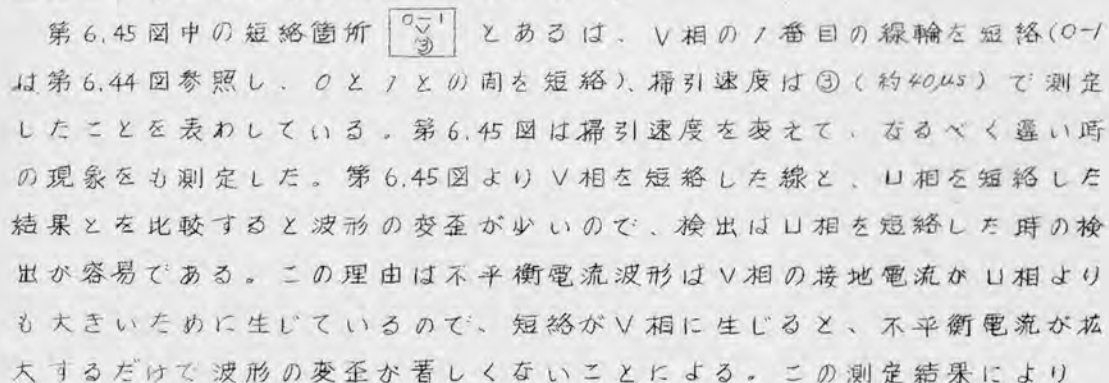 第6.45図中の短絡箇所 0-1 V ③ とあるは、V相の1番目の線輪を短絡(0-1
は第6.44図参照し、0と1との間を短絡)、掃引速度は③(約40μs)で測定
したことを表わしている。第6.45図は掃引速度を変えて、なるべく遅い時
の現象をも測定した。第6.45図よりV相を短絡した線と、U相を短絡した
結果とを比較すると波形の変歪が少いので、検出はU相を短絡した時の検
出が容易である。この理由は不平衡電流波形はV相の接地電流がU相より
も大きいために生じているので、短絡がV相に生じると、不平衡電流が拡
大するだけで波形の変歪が著しくないことによる。この測定結果により